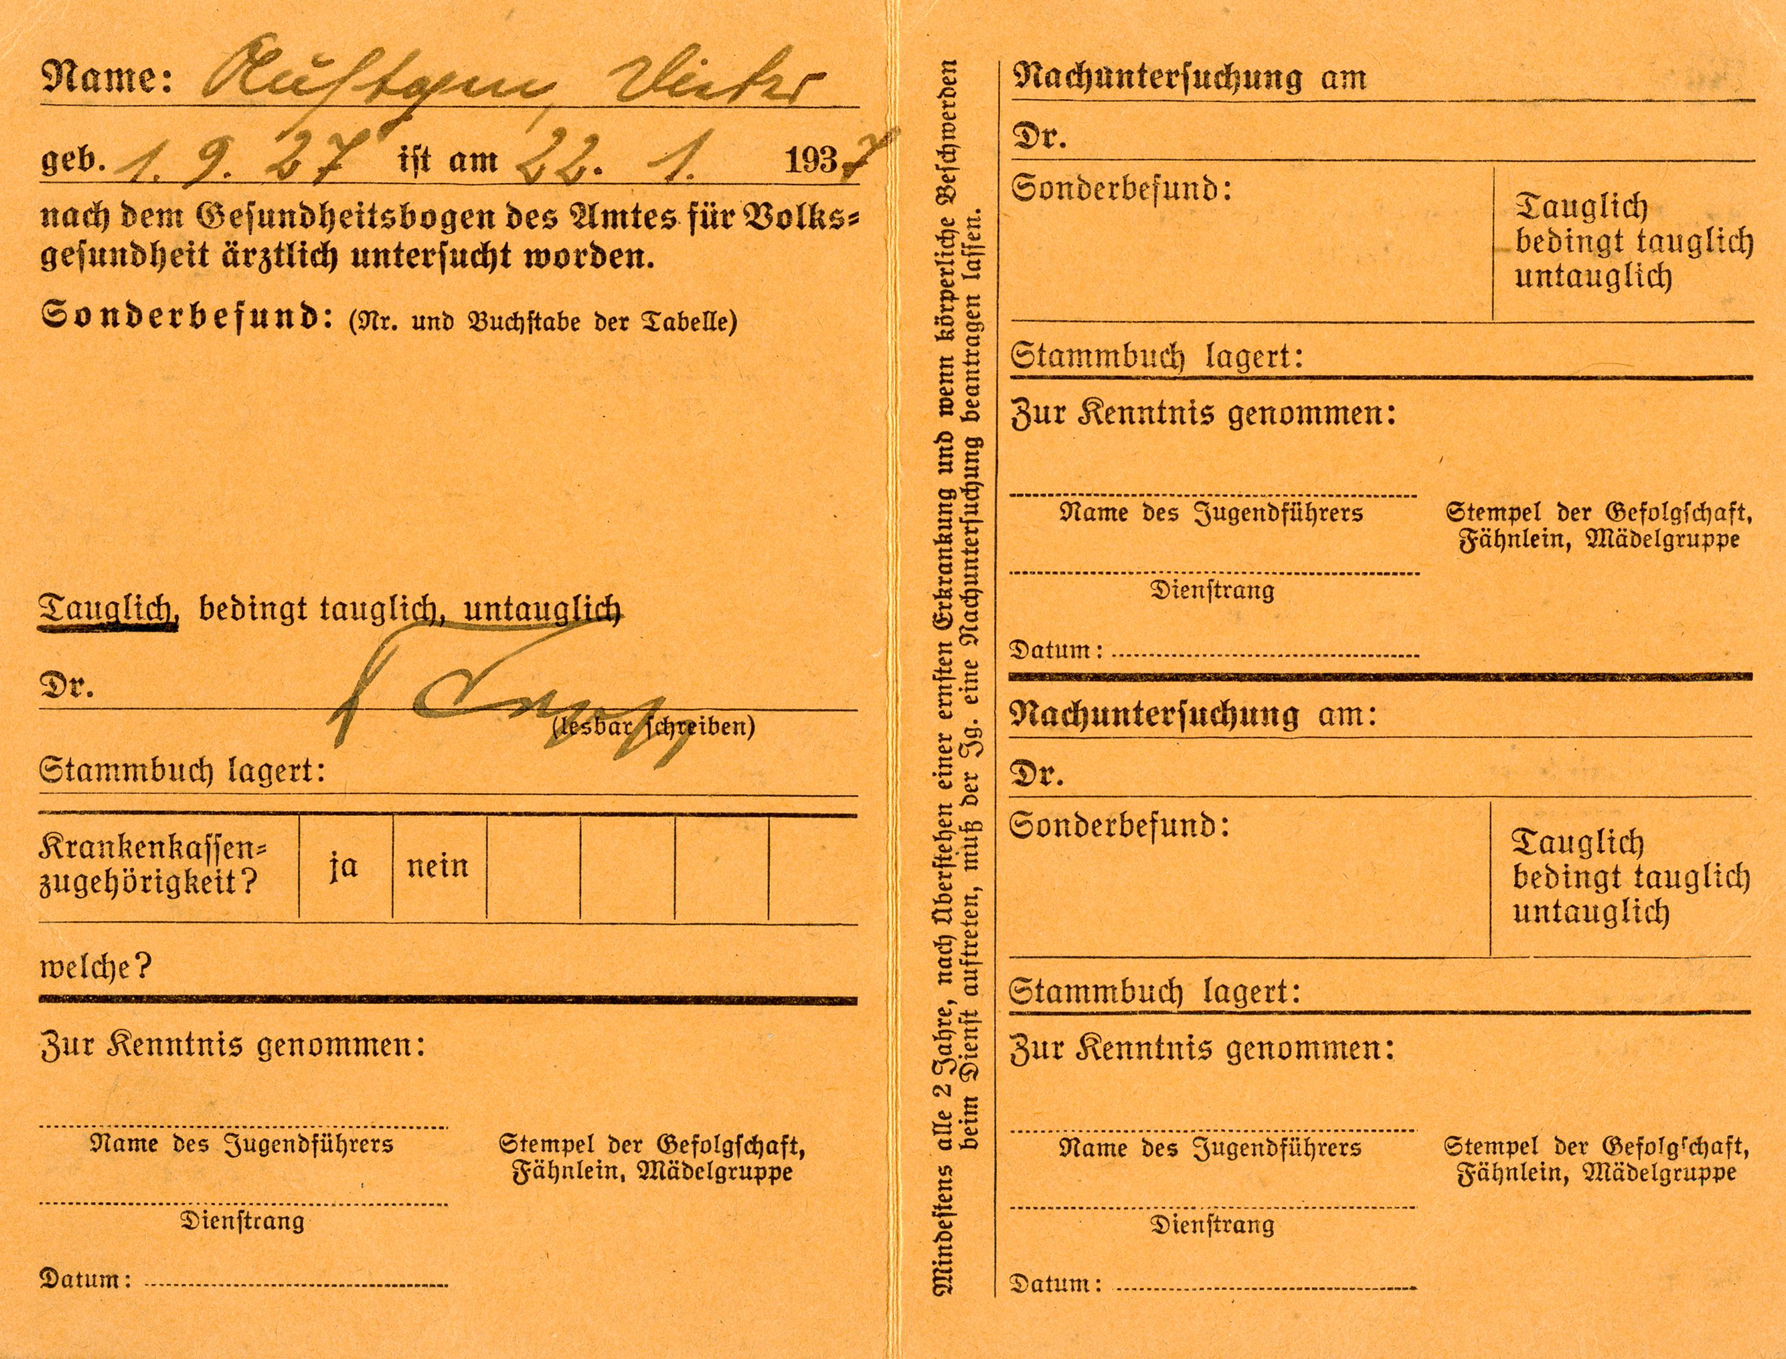 Name: Victor
geb. 1. 9. 27 ist am 22. 1. 1937
nach dem Gesundheitsbogen des Amtes für Volks-
gesundheit ärztlich untersucht worden.
Sonderbefund: (Nr. und Buchstabe der Tabelle)
Tauglich, bedingt tauglich, untauglich
Dr.
(lesbar schreiben)
Stammbuch lagert:
Krankenkassen-
zugehörigkeit? ja nein
welche?
Zur Kenntnis genommen:
Name des Jugendführers
Stempel der Gefolgschaft,
Fähnlein, Mädelgruppe
Dienstrang
Datum:
Mindestens alle 2 Jahre, nach Überstehen einer ernsten Erkrankung und wenn körperliche Beschwerden
beim Dienst auftreten, muß der Jg. eine Nachuntersuchung beantragen lassen.
Nachuntersuchung am
Dr.
Sonderbefund:
Tauglich
bedingt tauglich
untauglich
Stammbuch lagert:
Zur Kenntnis genommen:
Name des Jugendführers
Stempel der Gefolgschaft,
Fähnlein, Mädelgruppe
Dienstrang
Datum:
Nachuntersuchung am:
Dr.
Sonderbefund:
Tauglich
bedingt tauglich
untauglich
Stammbuch lagert:
Zur Kenntnis genommen:
Name des Jugendführers
Stempel der Gefolgschaft,
Fähnlein, Mädelgruppe
Dienstrang
Datum: